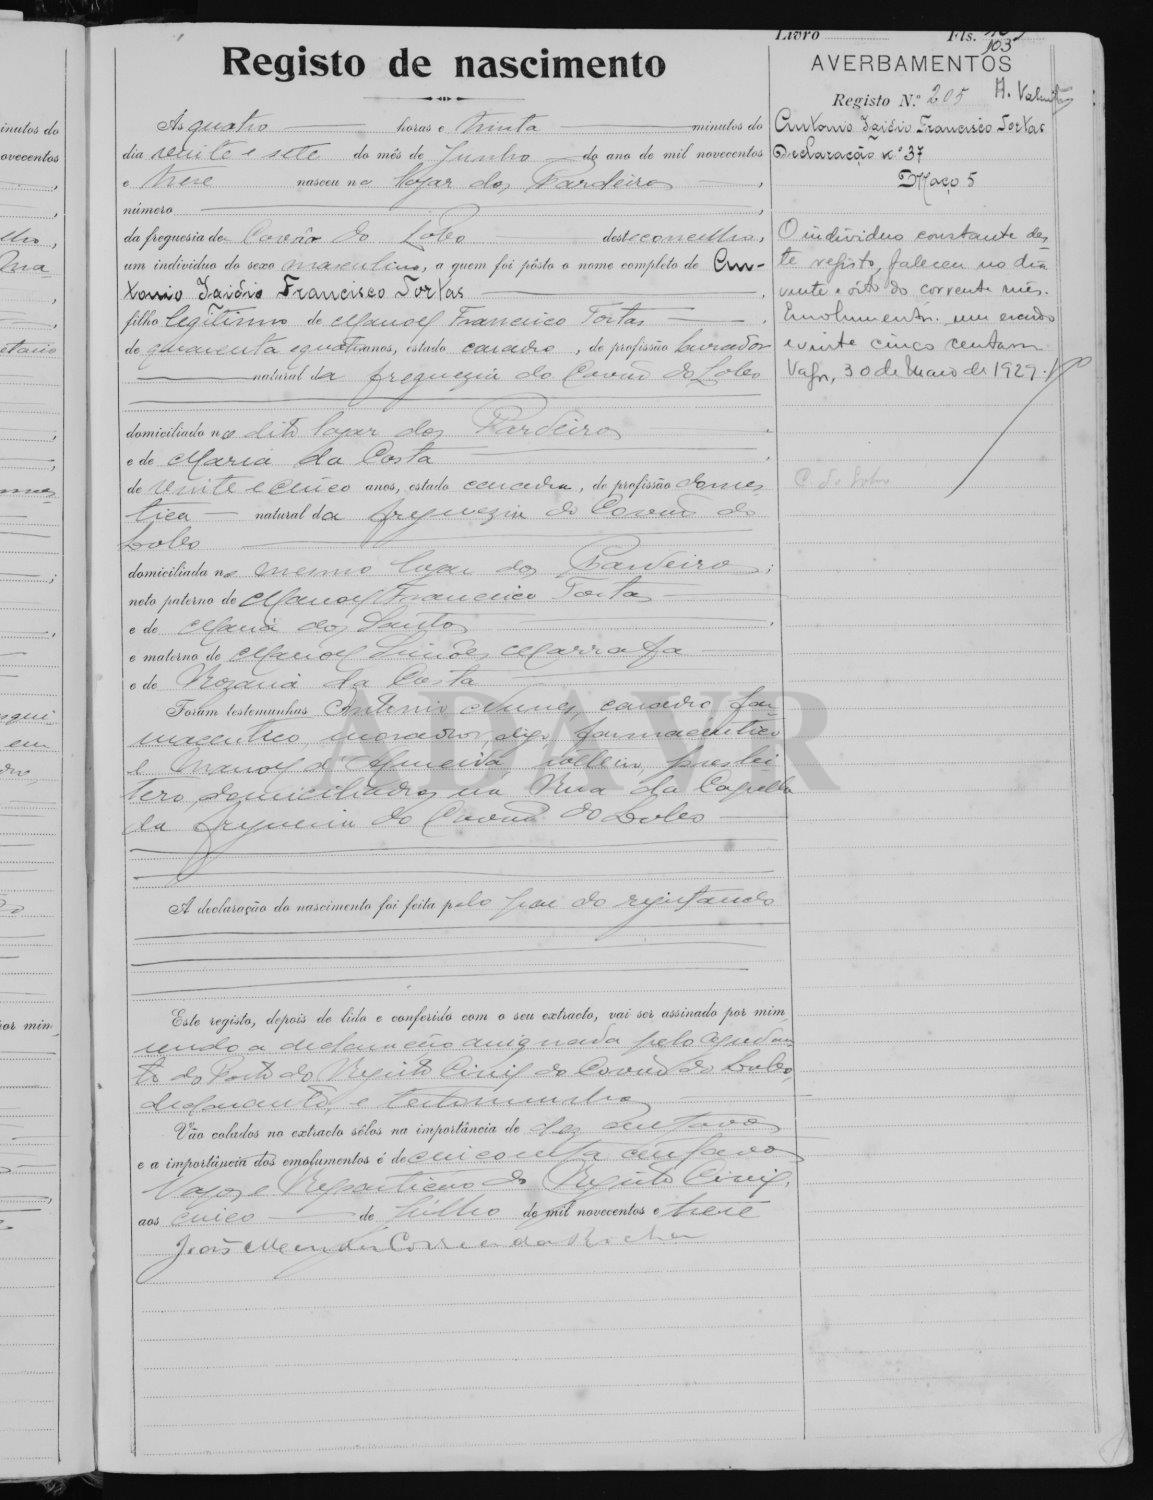 Registo de nascimento
As quatro horas e trinta minutos do
dia vinte e sete do mês de Junho do ano de mil novecentos
e treze nasceu no logar dos Pardeiros,
número
da freguesia de Covão do Lobo deste concelho,
um individuo do sexo masculino, a quem foi pôsto o nome completo de An-
tonio Isidio Francisco Tortas
filho legitimo de Manoel Francisco Tortas,
de quarenta e quatro anos, estado casado, de profissão lavrador
natural da freguezia do Covão do Lobo
domiciliado no dito logar dos Pardeiros
e de Maria da Costa
de vinte e cinco anos, estado casada, de profissão domes-
tica natural da freguezia do Covão do
Lobo
domiciliada no mesmo logar dos Pardeiros;
neto paterno de Manoel Francisco Tortas
e de Maria dos Santos,
e materno de Manoel Simões Marrafa
e de Rozaria da Costa
Foram testemunhas Antonio Nunes, casado, far-
maceutico, morador, digo, farmaceutico
e Manoel d'Almeida, solteiro, presbi-
tero, domiciliados na Rua da Capella
da freguezia do Covão do Lobo
A declaração do nascimento foi feita pelo pai do registando
Este registo, depois de lido e conferido com o seu extracto, vai ser assinado por mim,
sendo a declaração assignada pelo ajudan-
te do Posto do Registo Civil do Covão do Lobo,
declarante, e testemunhas
Vão colados no extracto sêlos na importância de dez centavos
e a importância dos emolumentos é de cincoenta centavos
Vagos e Repartição do Registo Civil,
aos cinco de Julho de mil novecentos e treze
João Mendes Correia da Rocha
Livro Fls.
103
AVERBAMENTOS
Registo N.º 205
Antonio Isidio Francisco Tortas
Declaração nº 37
Maço 5
O individuo constante des-
te registo, faleceu no dia
vinte e oito do corrente mês.
Emolumentos: um escudo
e vinte cinco centavos
Vagos, 30 de Maio de 1929.
C. do Lobo
ADAVR